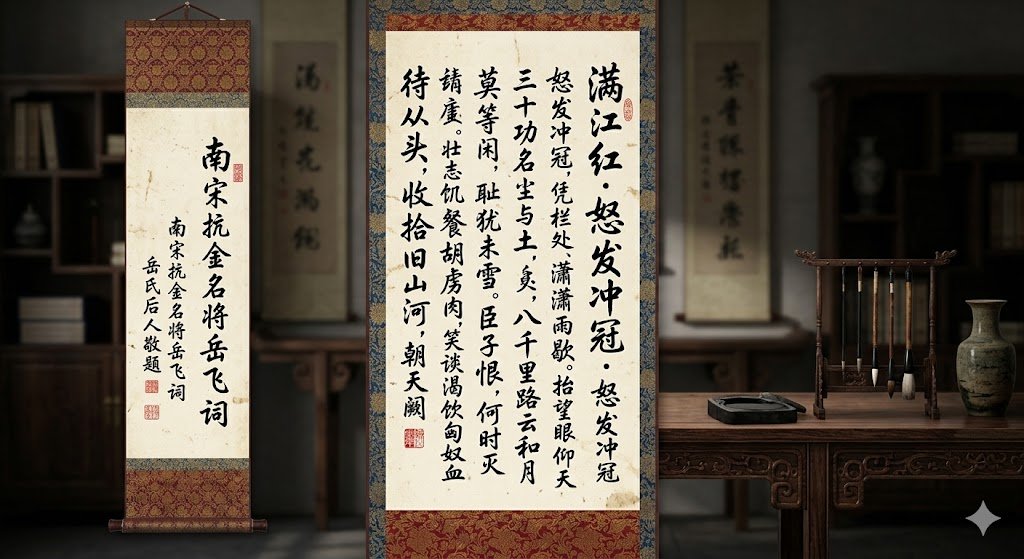 满江红·怒发冲冠·怒发冲冠
怒发冲冠，凭栏处、潇潇雨歇。抬望眼仰天
三十功名尘与土，，八千里路云和月
莫等闲，耻犹未雪。臣子恨，何时灭
壮志饥餐胡虏肉，笑谈渴饮匈奴血
待从头，收拾旧山河，朝天阙
南宋抗金名将岳飞词
南宋抗金名将岳飞词
岳氏后人敬题